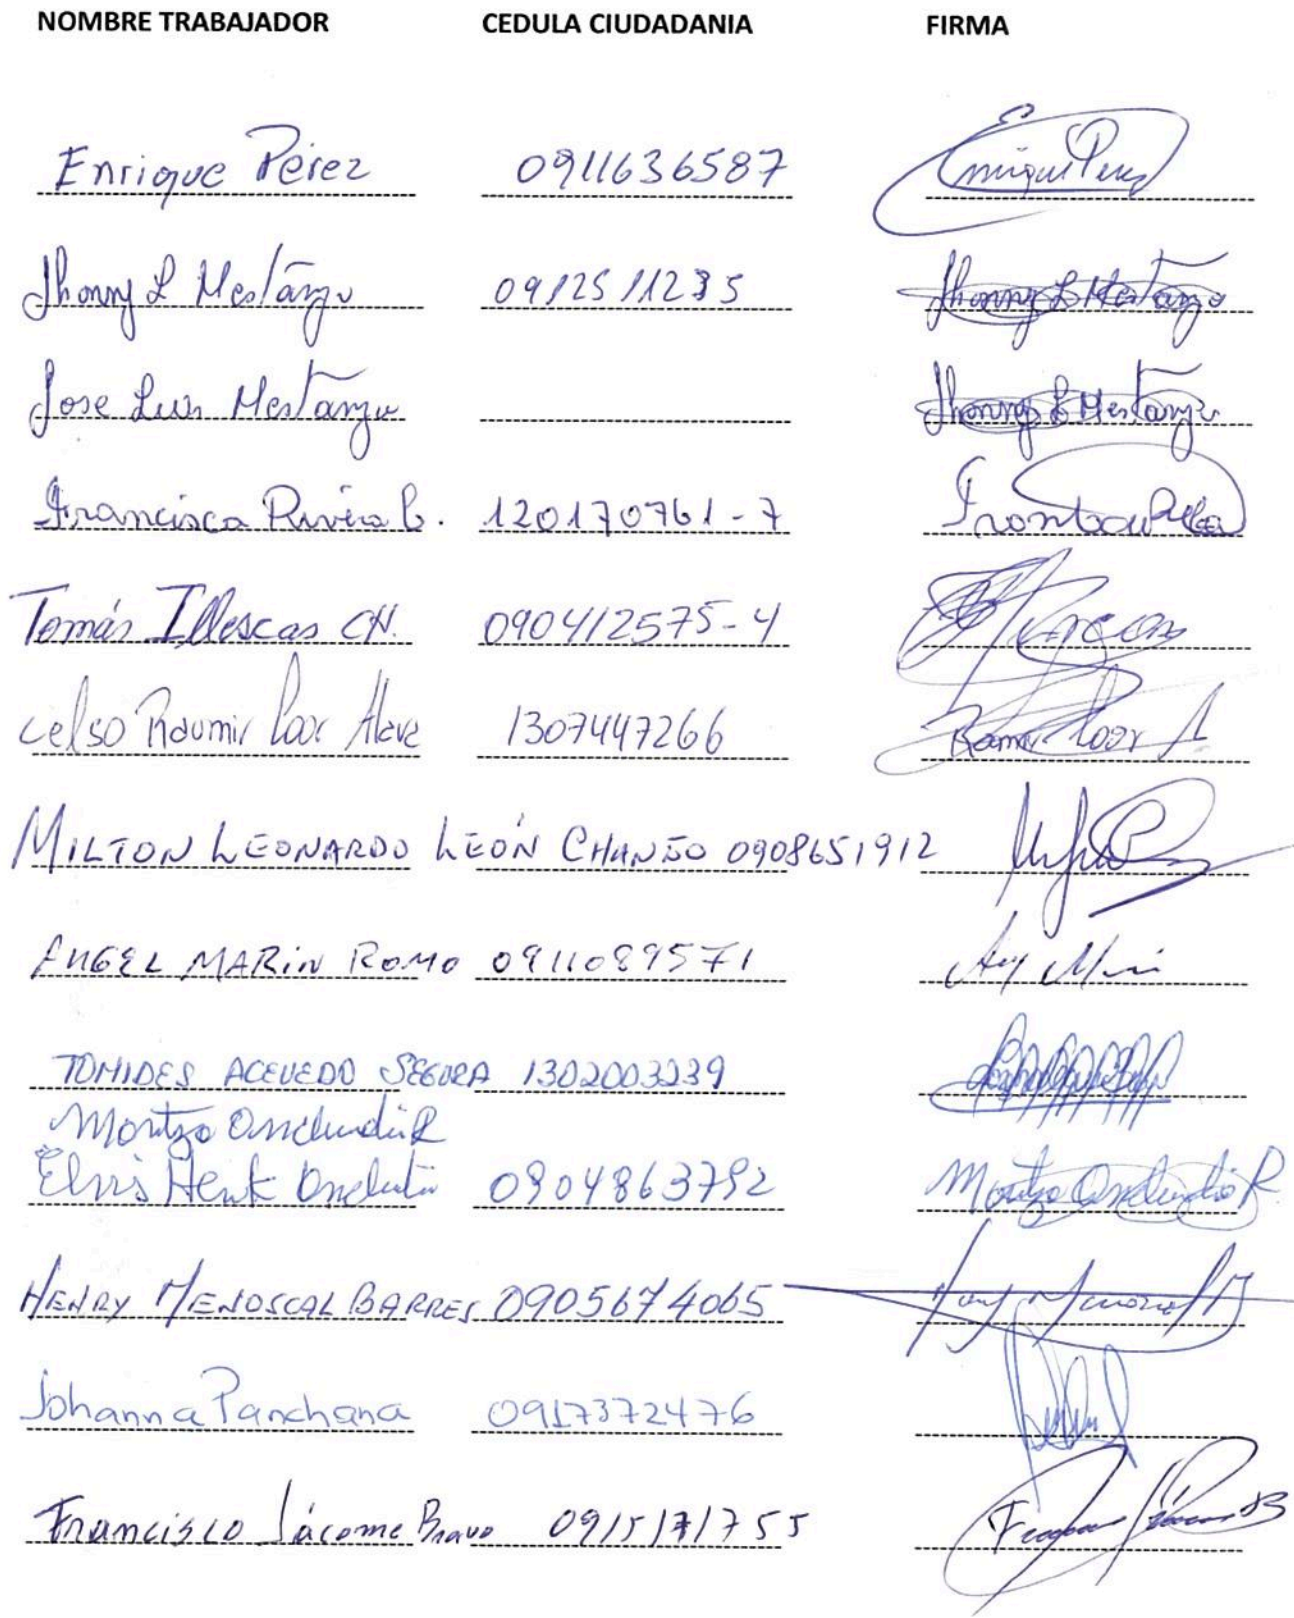 NOMBRE TRABAJADOR CEDULA CIUDADANIA FIRMA
Enrique Pérez 0911636587 Enrique Perez
Jhonny L Mestanza 0912511235 Jhonny L Mestanza
Jose Luis Mestanza Jhonny L Mestanza
Francisca Rivera C. 120170761-7
Tomás Illescas CH. 090412575-4
Celso Raumir Loor Alava 1307447266 Ramir Loor A
MILTON LEONARDO LEÓN 0908651912
ANGEL MARIN ROMO 0911089571
TOMIDES ACEVEDO SEGURA 1302003239
Elvis Henk 0904863792
HENRY MENOSCAL BARRES 0905674065
Johanna Panchana 0917372476
Francisco Jácome Bravo 0915171755